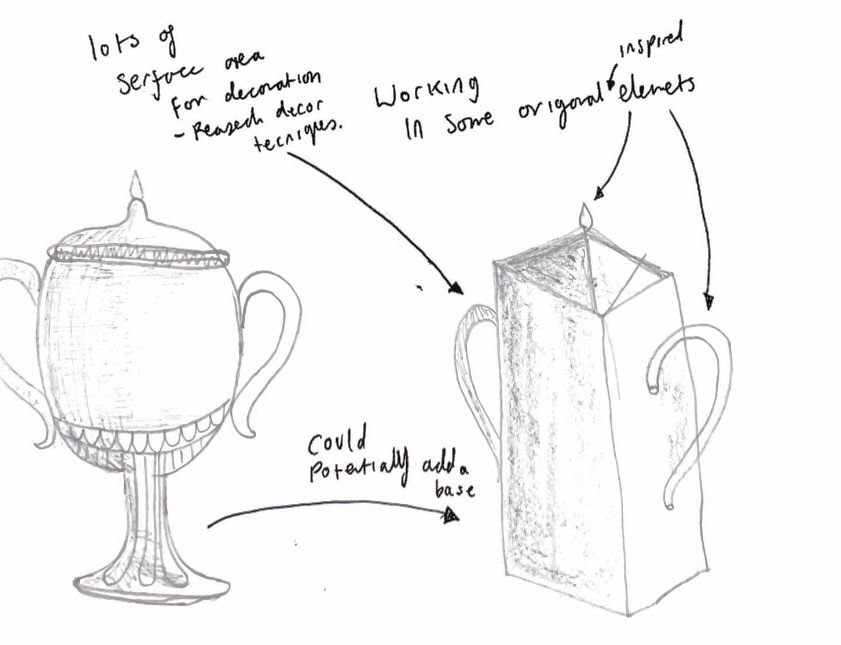 lots of
serface area
for decoration
- Reaserch decor
tecniques.
Working
in some origonal elemets
inspired
Could
Potentially add a
base